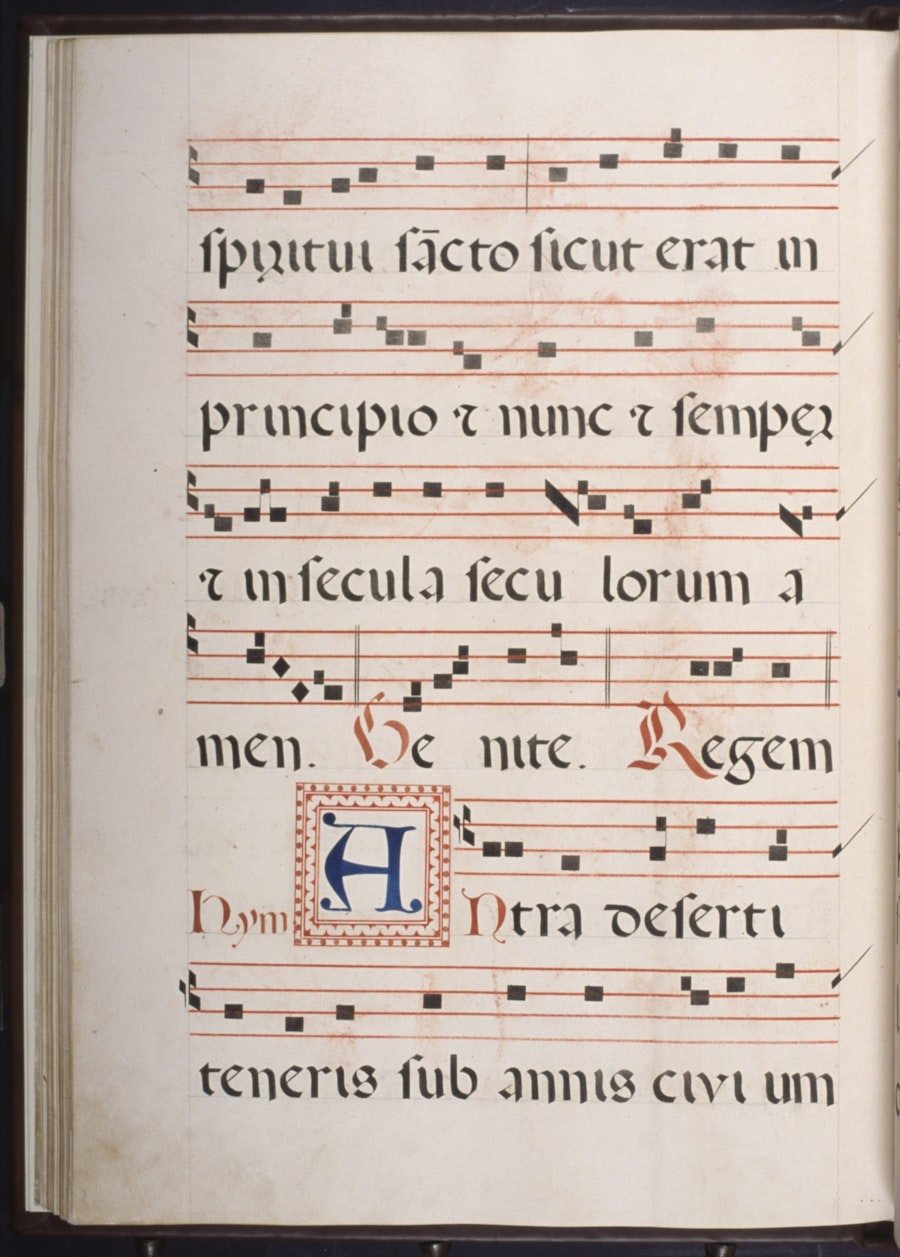 ſpiritui ſācto ſicut erat in
principio ⁊ nunc ⁊ ſemper
⁊ in ſecula ſecu lorum a
men. Ve nite. Regem
Hym A Ntra deſerti
teneris ſub annis civi um